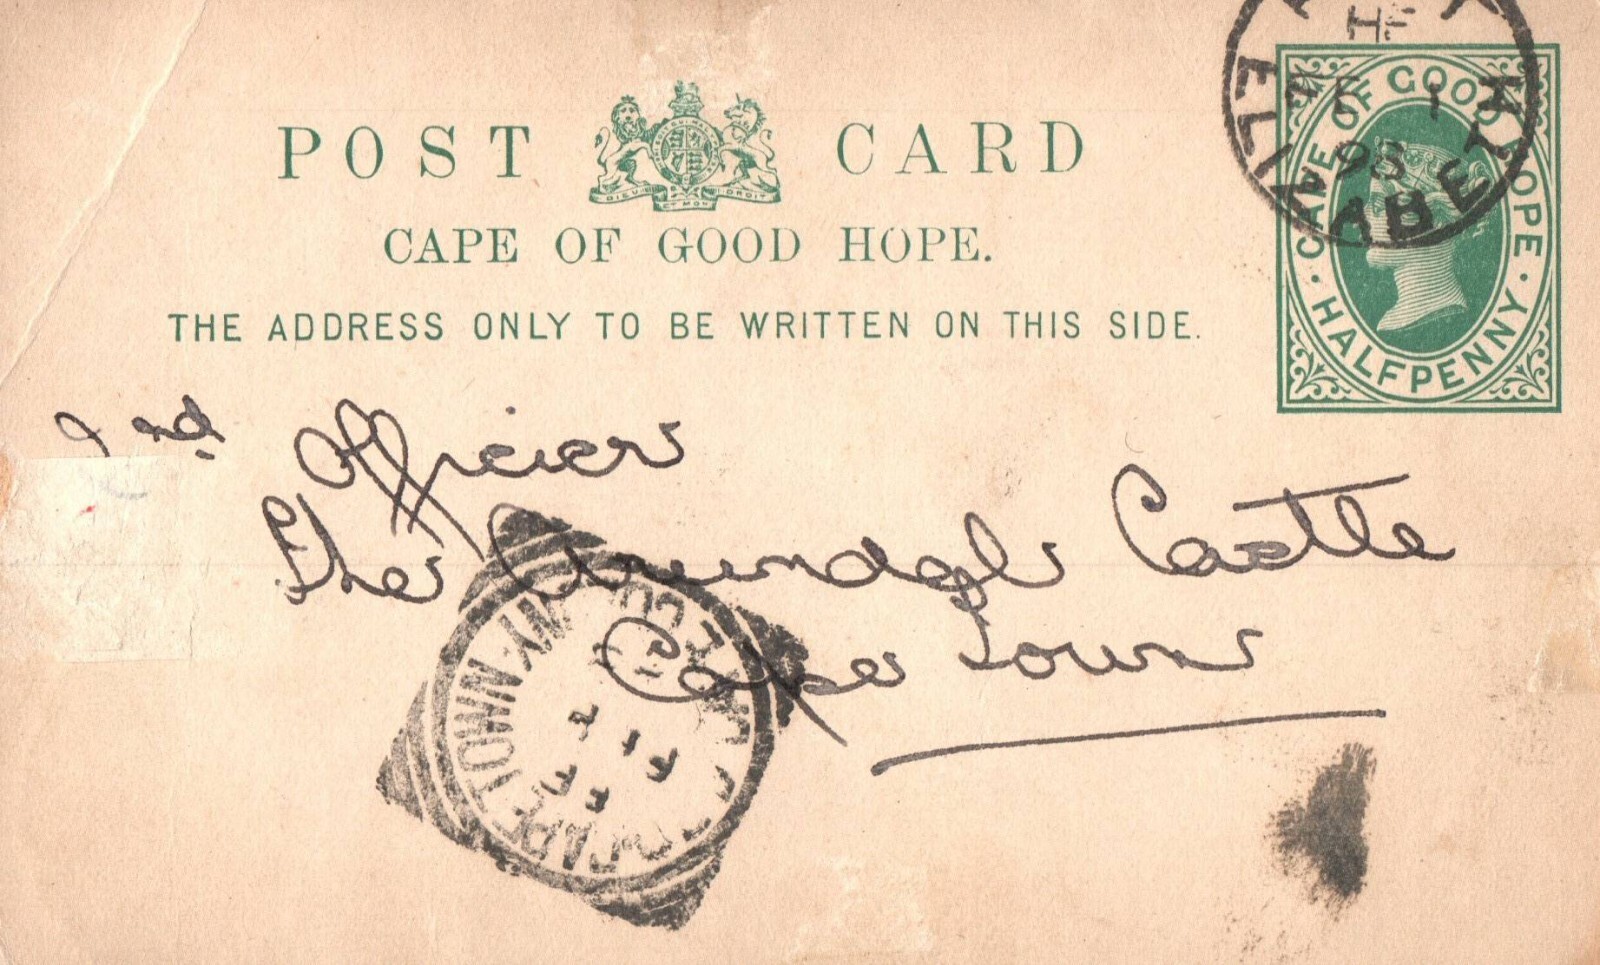 POST CARD
DIEU ET MON DROIT
CAPE OF GOOD HOPE.
THE ADDRESS ONLY TO BE WRITTEN ON THIS SIDE.
CAPE OF GOOD HOPE
HALFPENNY
ELIZABETH
98
2nd Officer
The Arundel Castle
Cape Town
CAPE TOWN